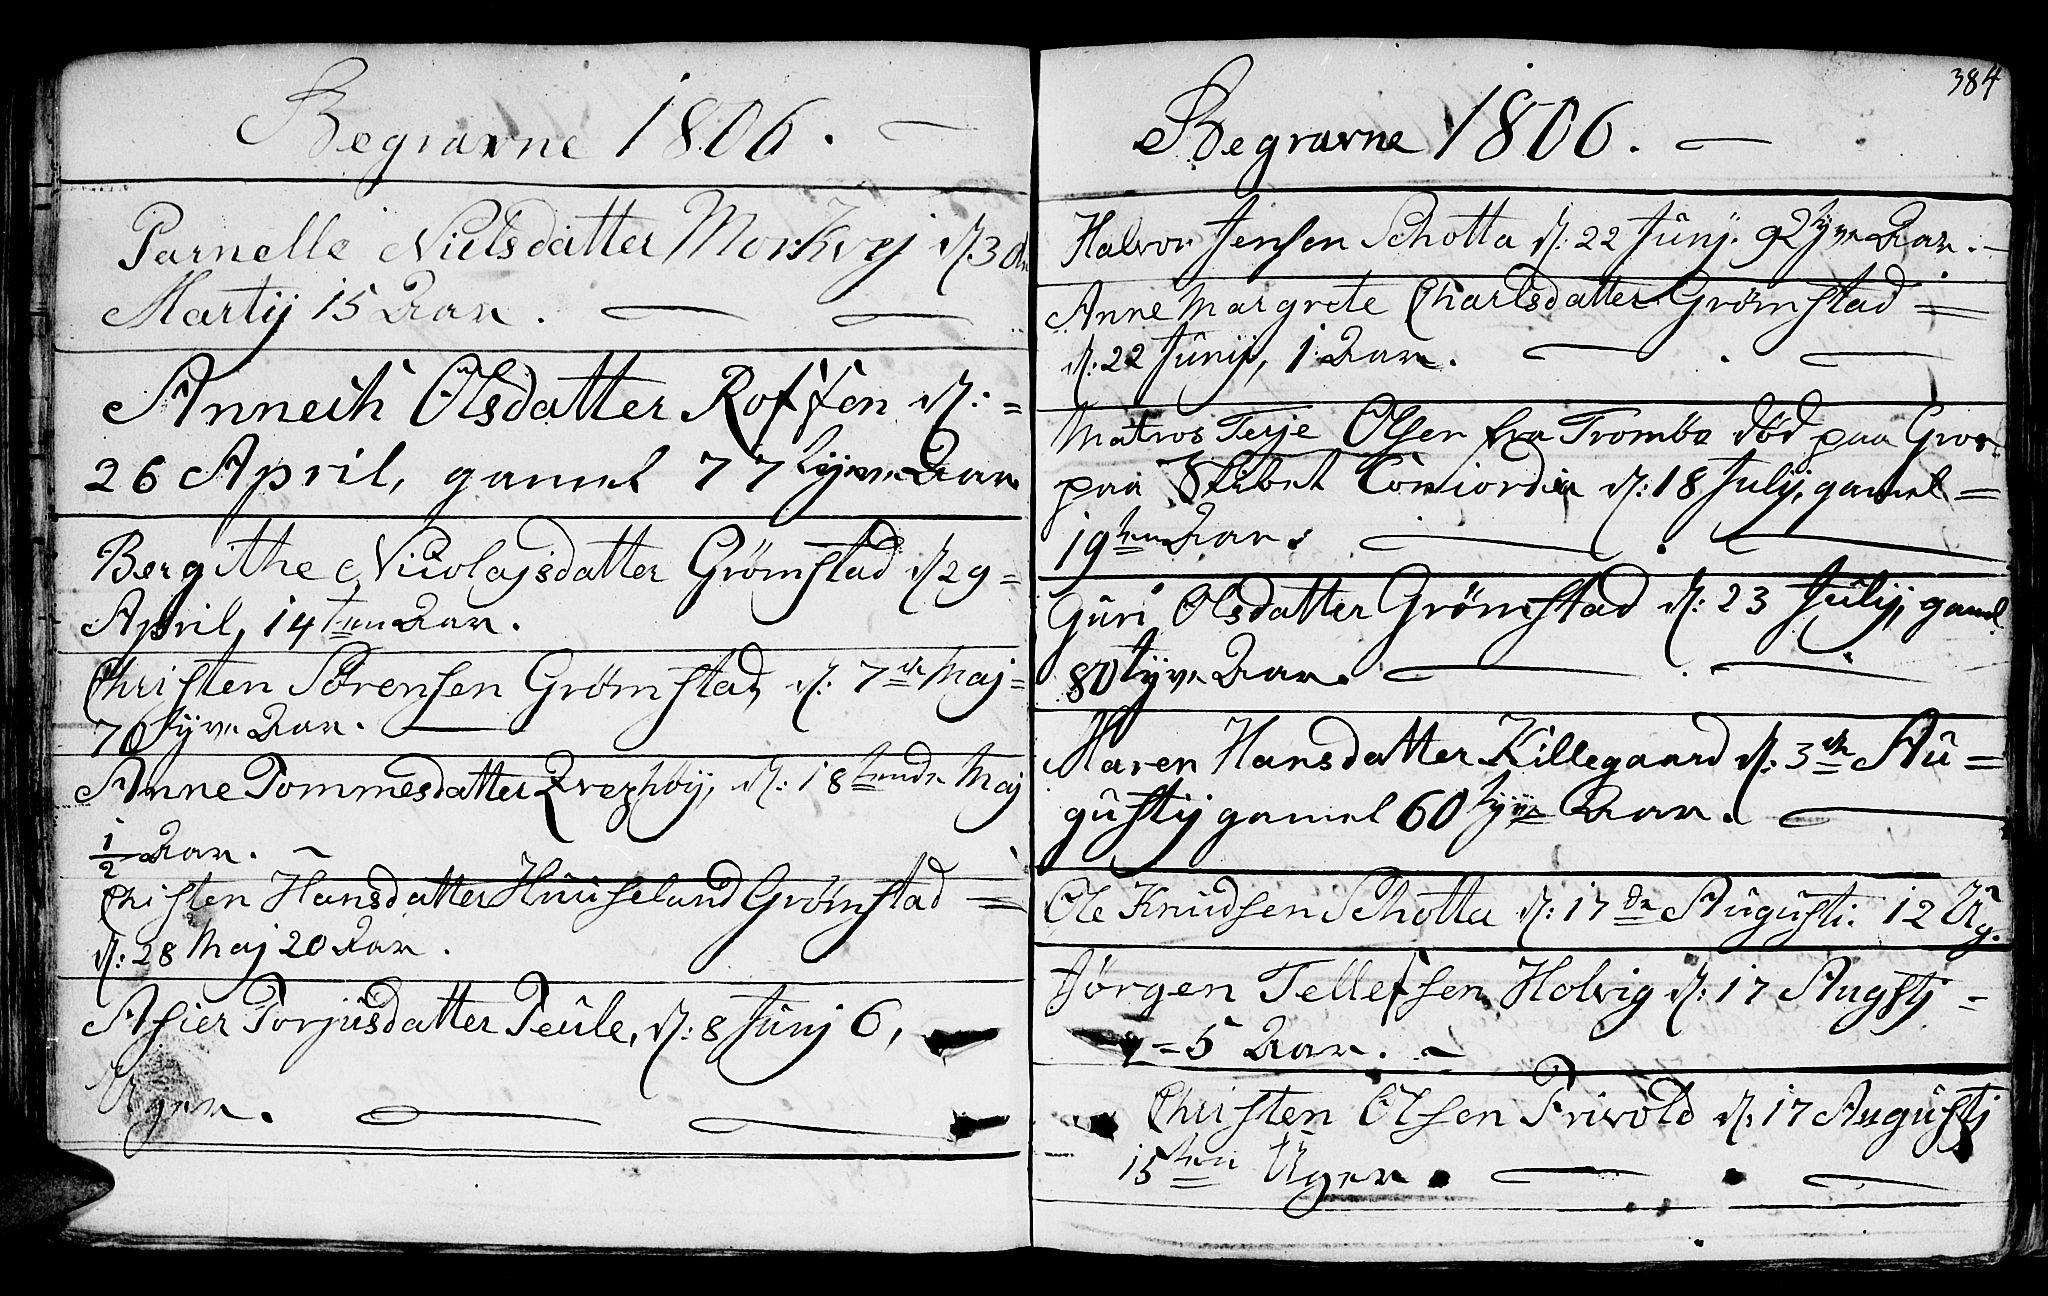 Begravne 1806. —
Parnelle Nielsdatter Morkvej d. 30te
Martij 15 Aar.
Annech Olsdatter Roffen d: =
26 April, gamel 77 tyve Aar
Bergithe Nicolajsdatter Grømstad d 29 =
April, 14ten Aar.
Christen Sörensen Grømstad, d: 7de Maj =
76 tyve Aar.
Anne Tommesdatter d: 18tende Maj
1/2 Aar.
Christen Hansdatter Huuseland Grømstad =
d: 28 Maj 20 Aar.
Asier Torjusdatter Teule, d: 8 Junj 6,
Uger.
384
Begravne 1806. —
Halvor Jensen Schotta d: 22 Junj. 92 tyve Aar. —
Anne Margrete Charlsdatter Grømstad =
d: 22 Junij, 1 Aar.
Matros Terje Olsen fra Trombø död paa Groos
paa Skibet Conciordia d: 18 Julij, gamel =
19ten Aar.
Guri Olsdatter Grømstad d: 23 Julij, gamel
80 tyve Aar.
Maren Hansdatter Killegaard d: 3de Au =
gustij gamel 60 tyve Aar.
Ole Knudsen Schotta d: 17de Augusti. 12 Ug.
Jörgen Tellefsen Holvig d: 17 Augstj =
= 5 Aar.
Christen Olsen Frivold d. 17 Augustj
15ten Uger.